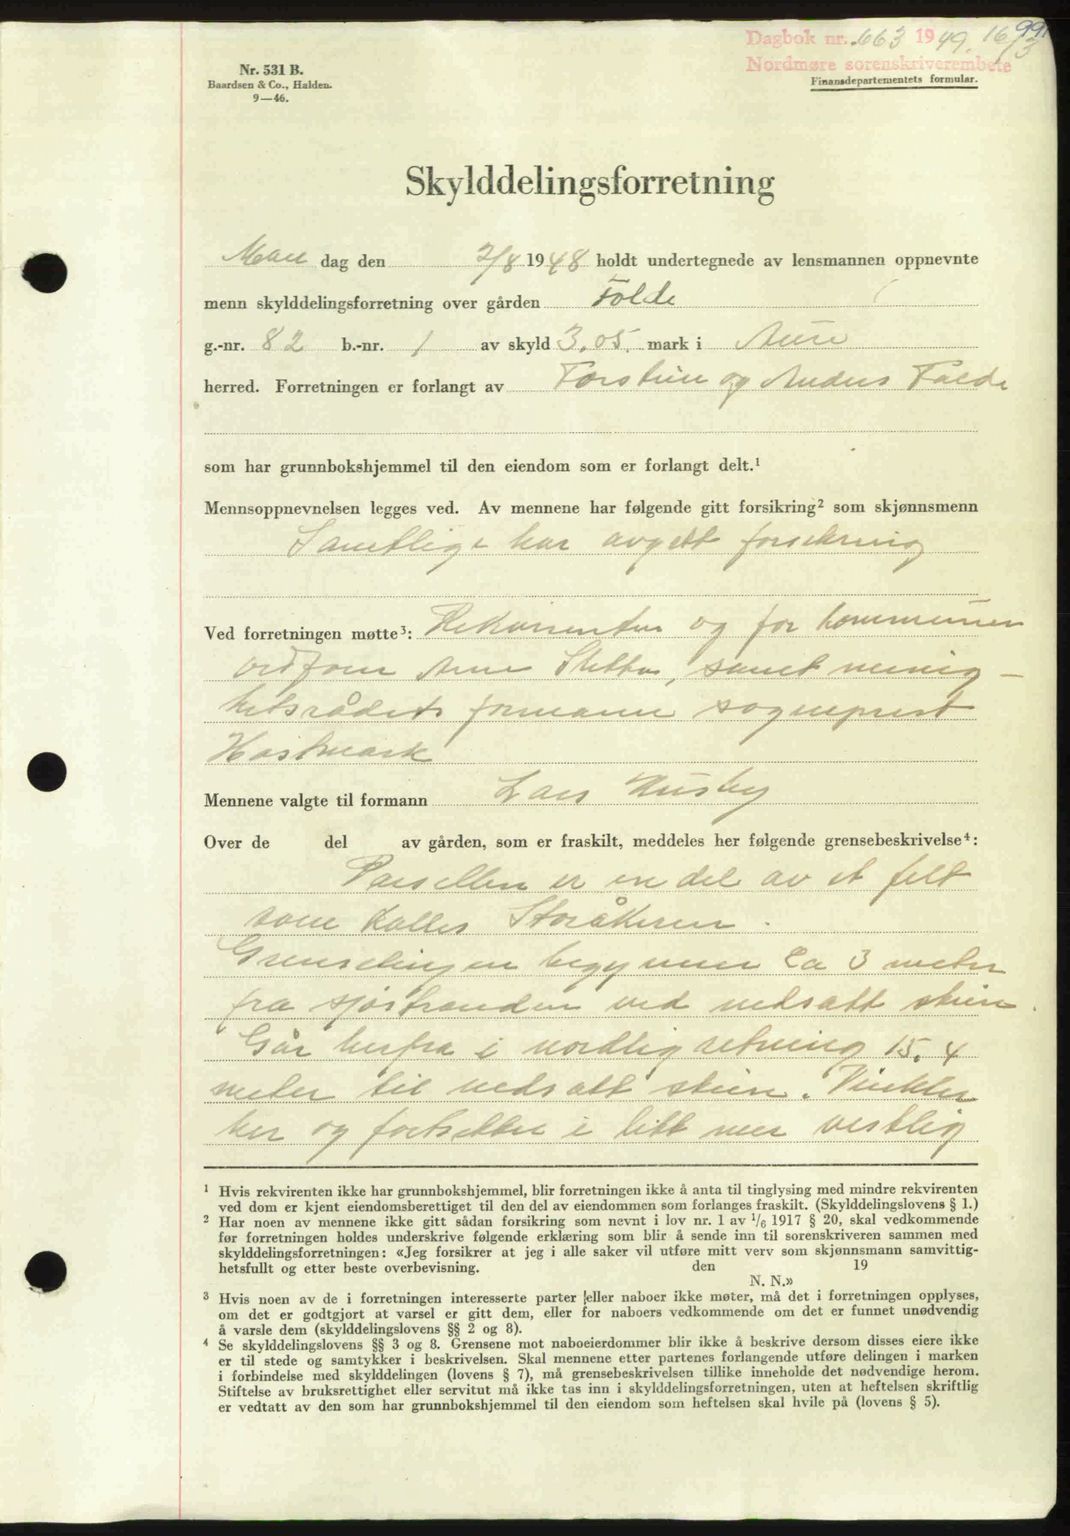 Dagbok nr. 663 1949. 16/3 991
Nordmøre sorenskriverembete
Nr. 531 B.
Baardsen & Co., Halden.
9—46.
Finansdepartementets formular.
Skylddelingsforretning
Man dag den 2/8 1948 holdt undertegnede av lensmannen oppnevnte
menn skylddelingsforretning over gården Folde
g.-nr. 82 b.-nr. 1 av skyld 3,05 mark i Aure
herred. Forretningen er forlangt av Torstein og Anders Folde
som har grunnbokshjemmel til den eiendom som er forlangt delt.¹
Mennsoppnevnelsen legges ved. Av mennene har følgende gitt forsikring² som skjønnsmenn
Samtlige har avgitt forsikring
Ved forretningen møtte³: Rekvirenten og for kommunen
ordføreren Skibber, samt menig-
hetsrådets formann sogneprest
Hastmark
Mennene valgte til formann Lars Husby
Over de del av gården, som er fraskilt, meddeles her følgende grensebeskrivelse⁴:
Parsellen er en del av et felt
som kalles Storåkeren.
Grenselinjen begynner ca 3 meter
fra sjøstranden ved nedsatt stein.
Går herfra i nordlig retning 15.4
meter til nedsatt stein. Vinkler
her og fortsetter i litt mer vestlig
¹ Hvis rekvirenten ikke har grunnbokshjemmel, blir forretningen ikke å anta til tinglysing med mindre rekvirenten
ved dom er kjent eiendomsberettiget til den del av eiendommen som forlanges fraskilt. (Skylddelingslovens § 1.)
² Har noen av mennene ikke gitt sådan forsikring som nevnt i lov nr. 1 av 1/6 1917 § 20, skal vedkommende
før forretningen holdes underskrive følgende erklæring som blir å sende inn til sorenskriveren sammen med
skylddelingsforretningen: «Jeg forsikrer at jeg i alle saker vil utføre mitt verv som skjønnsmann samvittig-
hetsfullt og etter beste overbevisning. den 19
N. N.»
³ Hvis noen av de i forretningen interesserte parter eller naboer ikke møter, må det i forretningen opplyses,
om det er godtgjort at varsel er gitt dem, eller for naboers vedkommende om det er funnet unødvendig
å varsle dem (skylddelingslovens §§ 2 og 8).
⁴ Se skylddelingslovens §§ 3 og 8. Grensene mot naboeierdommer blir ikke å beskrive dersom disses eiere ikke
er til stede og samtykker i beskrivelsen. Skal mennene etter partenes forlangende utføre delingen i marken
i forbindelse med skylddelingen (lovens § 7), må grensebeskrivelsen tillike inneholde det nødvendige herom.
Stiftelse av bruksrettighet eller servitut må ikke tas inn i skylddelingsforretningen, uten at heftelsen skriftlig
er vedtatt av den som har grunnbokshjemmel til den eiendom som heftelsen skal hvile på (lovens § 5).